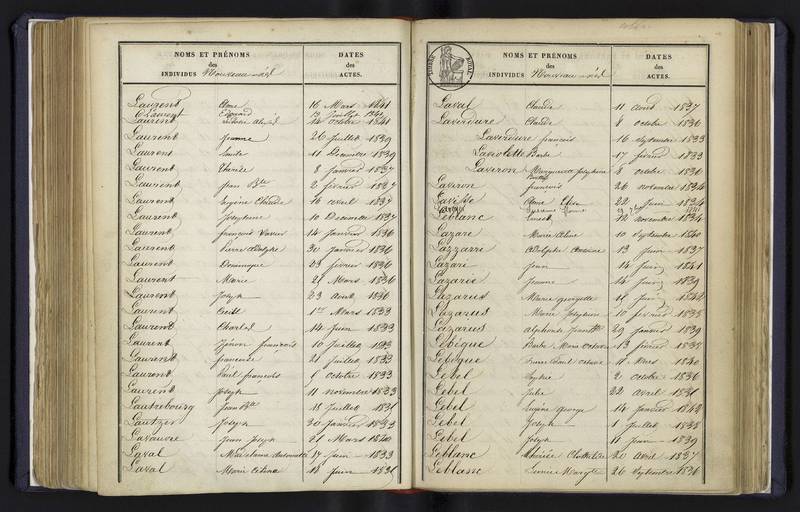 NOMS ET PRÉNOMS
des
INDIVIDUS Nouveau-nés
DATES
des
ACTES.
Laurent Anne 16 Mars 1841
Laurent Edouard 13 Juillet
Laurent 14 octobre 1841
Laurent Jeanne 26 Juillet 1839
Laurent Emile 11 Décembre 1839
Laurent Thérèse 8 Janvier 1837
Laurent Jean Bte 2 février 1837
Laurent Eugène Claude 16 avril 1837
Laurent Joséphine 10 Décembre 1837
Laurent françois Xavier 14 Janvier 1836
Laurent Pierre Adolphe 30 Janvier 1836
Laurent Dominique 23 février 1836
Laurent Marie 21 Mars 1836
Laurent Joseph 23 avril 1836
Laurent 1er Mars 1833
Laurent Charles 14 Juin 1833
Laurent françois 10 Juillet 1833
Laurent françoise 21 Juillet 1833
Laurent Paul françois 8 octobre 1833
Laurent Joseph 11 novembre 1833
Lautrebourg Jean Bte 18 Juillet 1831
Lautzer Joseph 30 Janvier 1833
Lavaure Jean Joseph 21 Mars 1840
Laval Madelaine Antoinette 17 Juin 1833
Laval Marie Célina 18 Juin 1831
TIMBRE ROYAL
NOMS ET PRÉNOMS
des
INDIVIDUS Nouveau-nés
DATES
des
ACTES.
Laval Claude 11 août 1837
Laverdure Claude 8 octobre 1836
Laverdure françois 16 septembre 1833
Laverolette Barbe 17 février 1833
Laveron Marguerite Joséphine 8 octobre 1836
Laveron francois 26 novembre 1834
Lavisse Anne Elisa 22 Juin 1834
Leblanc 12 novembre 1834
Lazare Marie Aline 10 septembre 1840
Lazzarre Adolphe Antoine 13 Juin 1837
Lazari Jean 14 Juin 1841
Lazaric Jeanne 14 Juin 1839
Lazarus Marie georgette 11 Juin 1842
Lazarus Marie Joséphine 10 février 1838
Lazarus alphonse 29 Janvier 1839
Lebègue Barbe Marie octavie 13 février 1838
Lebègue Paul octave 11 Mars 1840
Lebel Sophie 2 octobre 1836
Lebel Julie 22 avril 1831
Lebel Eugène george 14 Janvier 1842
Lebel Joseph 1 Juillet 1838
Lebel Joseph 11 Juin 1839
Leblanc Thérèse Clotilde 20 avril 1837
Leblanc Marg te 26 septembre 1836